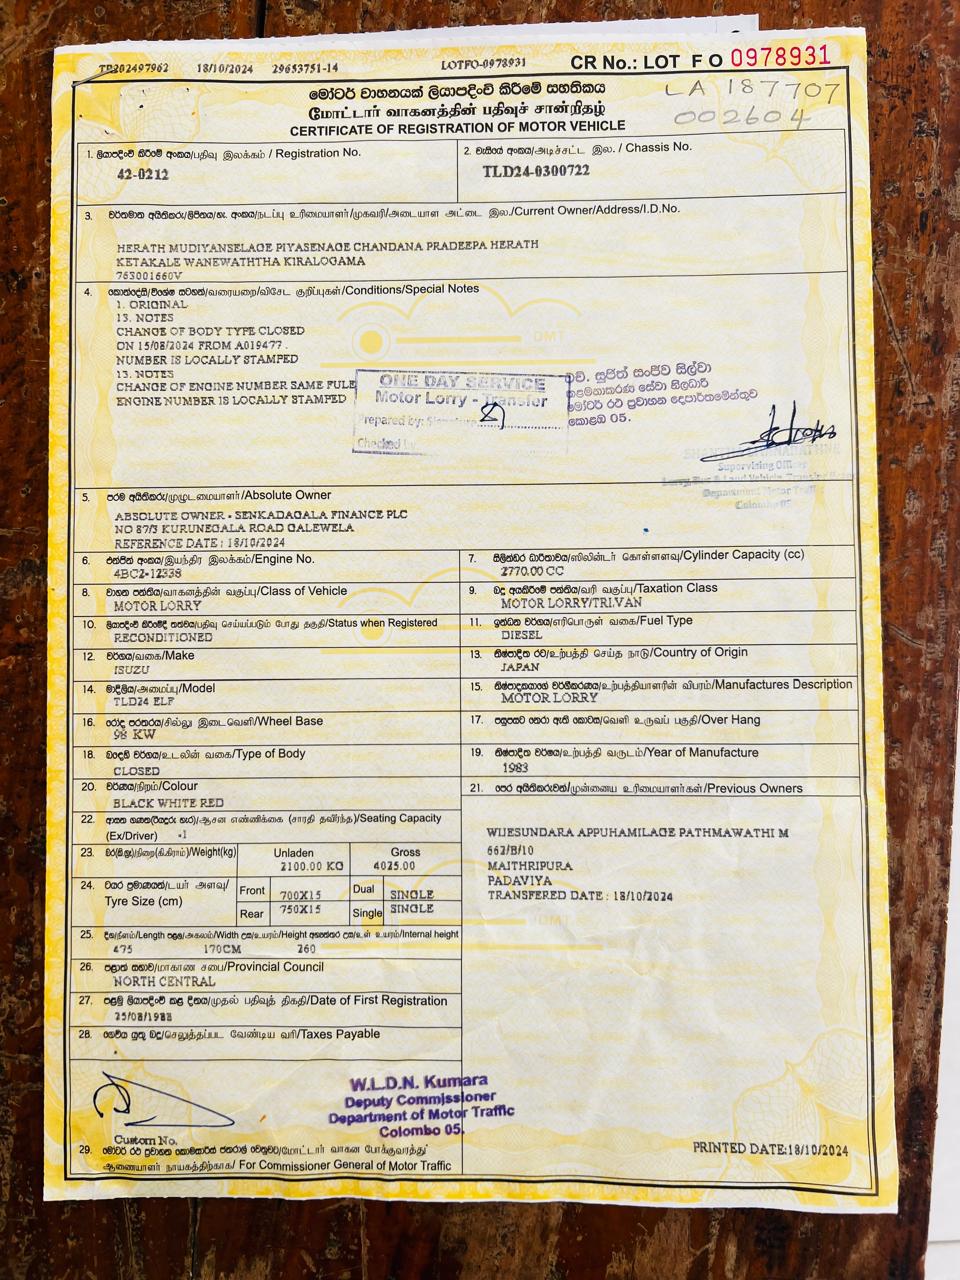 TP202497962 18/10/2024 29653751-14 LOTFO-0978931 CR No.: LOT F O 0978931
LA 187707
002604
මෝටර් වාහනයක් ලියාපදිංචි කිරීමේ සහතිකය
மோட்டார் வாகனத்தின் பதிவுச் சான்றிதழ்
CERTIFICATE OF REGISTRATION OF MOTOR VEHICLE
1. ලියාපදිංචි කිරීමේ අංකය/பதிவு இலக்கம் / Registration No.
42-0212
2. චැසියේ අංකය/அடிச்சட்ட இல. / Chassis No.
TLD24-0300722
3. වර්තමාන අයිතිකරු/ලිපිනය/හැ. අංකය/நடப்பு உரிமையாளர்/முகவரி/அடையாள அட்டை இல./Current Owner/Address/I.D.No.
HERATH MUDIYANSELAGE PIYASENAGE CHANDANA PRADEEPA HERATH
KETAKALE WANEWATHTHA KIRALOGAMA
763001660V
4. කොන්දේසි/විශේෂ සටහන්/வரையறை/விசேட குறிப்புகள்/Conditions/Special Notes
1. ORIGINAL
13. NOTES
CHANGE OF BODY TYPE CLOSED
ON 15/08/2024 FROM A019477.
NUMBER IS LOCALLY STAMPED
13. NOTES
CHANGE OF ENGINE NUMBER SAME FULE
ENGINE NUMBER IS LOCALLY STAMPED
DMT
ONE DAY SERVICE
Motor Lorry - Transfer
Prepared by: Signature
Checked by
එච්. සුජිත් සංජීව සිල්වා
කළමනාකරණ සේවා නිලධාරී
මෝටර් රථ ප්‍රවාහන දෙපාර්තමේන්තුව
කොළඹ 05.
Supervising Officer
Department Motor Traffic
Colombo 05
5. පරම අයිතිකරු/முழுஉடமையாளர்/Absolute Owner
ABSOLUTE OWNER - SENKADAGALA FINANCE PLC
NO 87/3 KURUNEGALA ROAD GALEWELA
REFERENCE DATE : 18/10/2024
6. එන්ජින් අංකය/இயந்திர இலக்கம்/Engine No.
4BC2-12338
7. සිලින්ඩර ධාරිතාවය/ஸிலிண்டர் கொள்ளளவு/Cylinder Capacity (cc)
2770.00 CC
8. වාහන පන්තිය/வாகனத்தின் வகுப்பு/Class of Vehicle
MOTOR LORRY
9. බදු අයකිරීමේ පන්තිය/வரி வகுப்பு/Taxation Class
MOTOR LORRY/TRI.VAN
10. ලියාපදිංචි කිරීමේදී තත්වය/பதிவு செய்யப்படும் போது தகுதி/Status when Registered
RECONDITIONED
11. ඉන්ධන වර්ගය/எரிபொருள் வகை/Fuel Type
DIESEL
12. වර්ගය/வகை/Make
ISUZU
13. නිෂ්පාදිත රට/உற்பத்தி செய்த நாடு/Country of Origin
JAPAN
14. මාදිලිය/அமைப்பு/Model
TLD24 ELF
15. නිෂ්පාදකයාගේ වර්ගීකරණය/உற்பத்தியாளரின் விபரம்/Manufactures Description
MOTOR LORRY
16. රෝද පරතරය/சில்லு இடைவெளி/Wheel Base
98 KW
17. පසුපසට නෙරා ඇති කොටස/வெளி உருவப் பகுதி/Over Hang
18. බඳෙහි වර්ගය/உடலின் வகை/Type of Body
CLOSED
19. නිෂ්පාදිත වර්ෂය/உற்பத்தி வருடம்/Year of Manufacture
1983
20. වර්ණය/நிறம்/Colour
BLACK WHITE RED
21. පෙර අයිතිකරුවන්/முன்னைய உரிமையாளர்கள்/Previous Owners
22. ආසන ගණන(රියදුරු හැර)/ஆசன எண்ணிக்கை (சாரதி தவிர்ந்த)/Seating Capacity
(Ex/Driver) -1
WIJESUNDARA APPUHAMILAGE PATHMAWATHI M
662/B/10
MAITHRIPURA
PADAVIYA
TRANSFERED DATE : 18/10/2024
23. බර(කි.ග්‍රෑ)/நிறை(கி.கிராம்)/Weight(kg) Unladen Gross
2100.00 KG 4025.00
24. ටයර ප්‍රමාණයන්/டயர் அளவு/
Tyre Size (cm)
Front 700X15 Dual SINGLE
Rear 750X15 Single SINGLE
DMT
25. දිග/நீளம்/Length පළල/அகலம்/Width උස/உயரம்/Height අභ්‍යන්තර උස/உள் உயரம்/Internal height
475 170CM 260
26. පළාත් සභාව/மாகாண சபை/Provincial Council
NORTH CENTRAL
27. පළමු ලියාපදිංචි කළ දිනය/முதல் பதிவுத் திகதி/Date of First Registration
25/08/1988
28. ගෙවිය යුතු බදු/செலுத்தப்பட வேண்டிய வரி/Taxes Payable
W.L.D.N. Kumara
Deputy Commissioner
Department of Motor Traffic
Colombo 05.
Custom No.
29. මෝටර් රථ ප්‍රවාහන කොමසාරිස් ජනරාල් වෙනුවට/மோட்டார் வாகன போக்குவரத்து
ஆணையாளர் நாயகத்திற்காக/ For Commissioner General of Motor Traffic
PRINTED DATE:18/10/2024